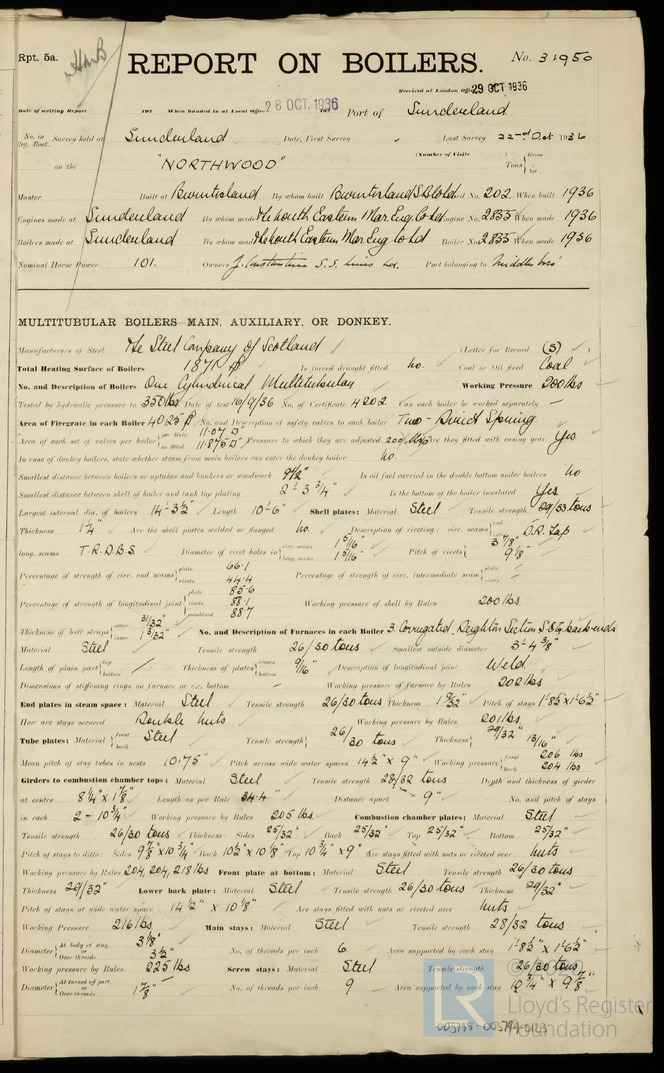 Rpt. 5a.
REPORT ON BOILERS.
No. 31950
Received at London Office 29 OCT. 1936
Date of writing Report 192 When handed in at Local Office 28 OCT. 1936 Port of Sunderland
No. in Reg. Book. Survey held at Sunderland Date, First Survey - Last Survey 22nd Oct 1936
on the "NORTHWOOD" (Number of Visits Tons { Gross Net
Master Built at Burntisland By whom built Burntisland S.B. Co Ld Yard No. 202 When built 1936
Engines made at Sunderland By whom made The North Eastern Mar. Eng. Co Ld Engine No. 2835 When made 1936
Boilers made at Sunderland By whom made The North Eastern Mar. Eng. Co Ld Boiler No. 2835 When made 1936
Nominal Horse Power 101. Owners J. Constantine S.S. Lines Ld. Port belonging to Middlesbro'
MULTITUBULAR BOILERS MAIN, AUXILIARY, OR DONKEY.
Manufacturers of Steel The Steel Company of Scotland (Letter for Record (S)
Total Heating Surface of Boilers 1871 Is forced draught fitted no. Coal or Oil fired Coal
No. and Description of Boilers One Cylindrical Multitubular Working Pressure 200 lbs
Tested by hydraulic pressure to 350 lbs Date of test 16/9/36 No. of Certificate 4202 Can each boiler be worked separately -
Area of Firegrate in each Boiler 40.25 No. and Description of safety valves to each boiler Two - Direct Spring.
Area of each set of valves per boiler { per Rule 11.07 □" as fitted 11.875 □" Pressure to which they are adjusted Are they fitted with easing gear Yes
In case of donkey boilers, state whether steam from main boilers can enter the donkey boiler no.
Smallest distance between boilers or uptakes and bunkers or woodwork 9½" Is oil fuel carried in the double bottom under boilers no
Smallest distance between shell of boiler and tank top plating 2'-3¾" Is the bottom of the boiler insulated Yes
Largest internal dia. of boilers 14'-3½" Length 10'-6" Shell plates: Material Steel Tensile strength 29/33 tons
Thickness 1¼" Are the shell plates welded or flanged no. Description of riveting: circ. seams { end D.R. Lap
long. seams T.R.D.B.S. Diameter of rivet holes in { circ. seams 1 5/16" long. seams 1 5/16" Pitch of rivets { 3 7/8" 9 1/8"
Percentage of strength of circ. end seams { plate 66.1 rivets 44.4 Percentage of strength of circ. intermediate seam { plate rivets
Percentage of strength of longitudinal joint { plate 85.6 rivets 88.1 combined 88.7 Working pressure of shell by Rules 200 lbs
Thickness of butt straps { outer 31/32" inner 1 3/32" No. and Description of Furnaces in each Boiler 3 Corrugated, Deighton Section back ends
Material Steel Tensile strength 26/30 tons Smallest outside diameter 3'-4 3/8"
Length of plain part { top bottom Thickness of plates { crown bottom 9/16" Description of longitudinal joint Weld
Dimensions of stiffening rings on furnace or c.c. bottom Working pressure of furnace by Rules 202 lbs
End plates in steam space: Material Steel Tensile strength 26/30 tons Thickness 1 9/32" Pitch of stays 1'-8½" x 1'-6½"
How are stays secured Double nuts Working pressure by Rules 201 lbs.
Tube plates: Material { front back Steel Tensile strength { 26/30 tons Thickness { 29/32" 13/16"
Mean pitch of stay tubes in nests 10.75" Pitch across wide water spaces 14½" x 9" Working pressure { front 206 lbs back 204 lbs
Girders to combustion chamber tops: Material Steel Tensile strength 28/32 tons Depth and thickness of girder
at centre 8¼" x 1 7/8" Length as per Rule 34.4 Distance apart 9" No. and pitch of stays
in each 2 - 10¾" Working pressure by Rules 205 lbs Combustion chamber plates: Material Steel
Tensile strength 26/30 tons Thickness: Sides 25/32" Back 25/32" Top 25/32" Bottom 25/32"
Pitch of stays to ditto: Sides 9 7/8" x 10¾" Back 10½" x 10 1/8" Top 10¾" x 9" Are stays fitted with nuts or riveted over nuts
Working pressure by Rules 204, 204, 218 lbs Front plate at bottom: Material Steel Tensile strength 26/30 tons
Thickness 29/32" Lower back plate: Material Steel Tensile strength 26/30 tons Thickness 29/32"
Pitch of stays at wide water space 14½" x 10 1/8" Are stays fitted with nuts or riveted over nuts
Working Pressure 216 lbs Main stays: Material Steel Tensile strength 28/32 tons
Diameter { At body of stay, or Over threads 3 1/8" 3½" No. of threads per inch 6 Area supported by each stay 1'-8½" x 1'-6½"
Working pressure by Rules 225 lbs Screw stays: Material Steel Tensile strength 26/30 tons
Diameter { At turned off part, or Over threads 1 7/8" No. of threads per inch 9 Area supported by each stay 10¾" x 9 7/8"
© 2020
LR
Lloyd's Register
Foundation